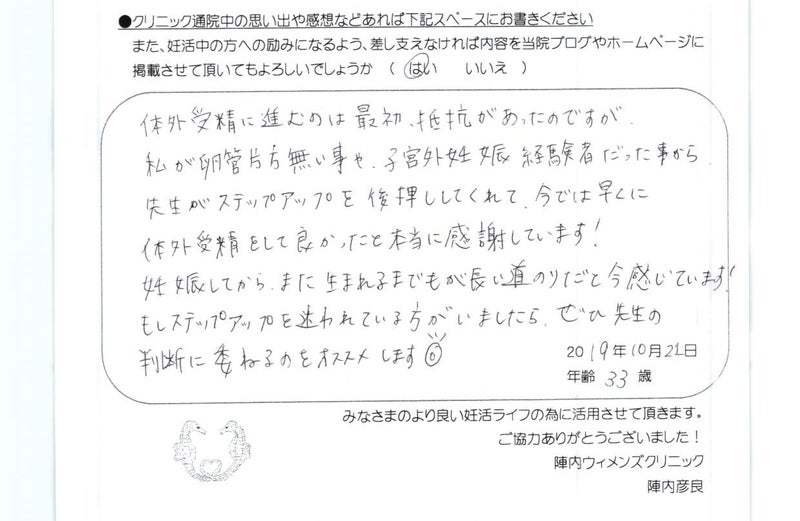 ●クリニック通院中の思い出や感想などあれば下記スペースにお書きください
また、妊活中の方への励みになるよう、差し支えなければ内容を当院ブログやホームページに
掲載させて頂いてもよろしいでしょうか （ はい　いいえ ）
体外受精に進むのは最初、抵抗があったのですが、
私が卵管片方無い事や、子宮外妊娠経験者だった事から、
先生がステップアップを後押ししてくれて、今では早くに
体外受精をして良かったと本当に感謝しています！
妊娠してから、また生まれるまでもが長い道のりだと今感じています！
もしステップアップを迷われている方がいましたら、ぜひ先生の
判断に委ねるのをオススメします
2019年10月21日
年齢 33 歳
みなさまのより良い妊活ライフの為に活用させて頂きます。
ご協力ありがとうございました！
陣内ウィメンズクリニック
陣内彦良